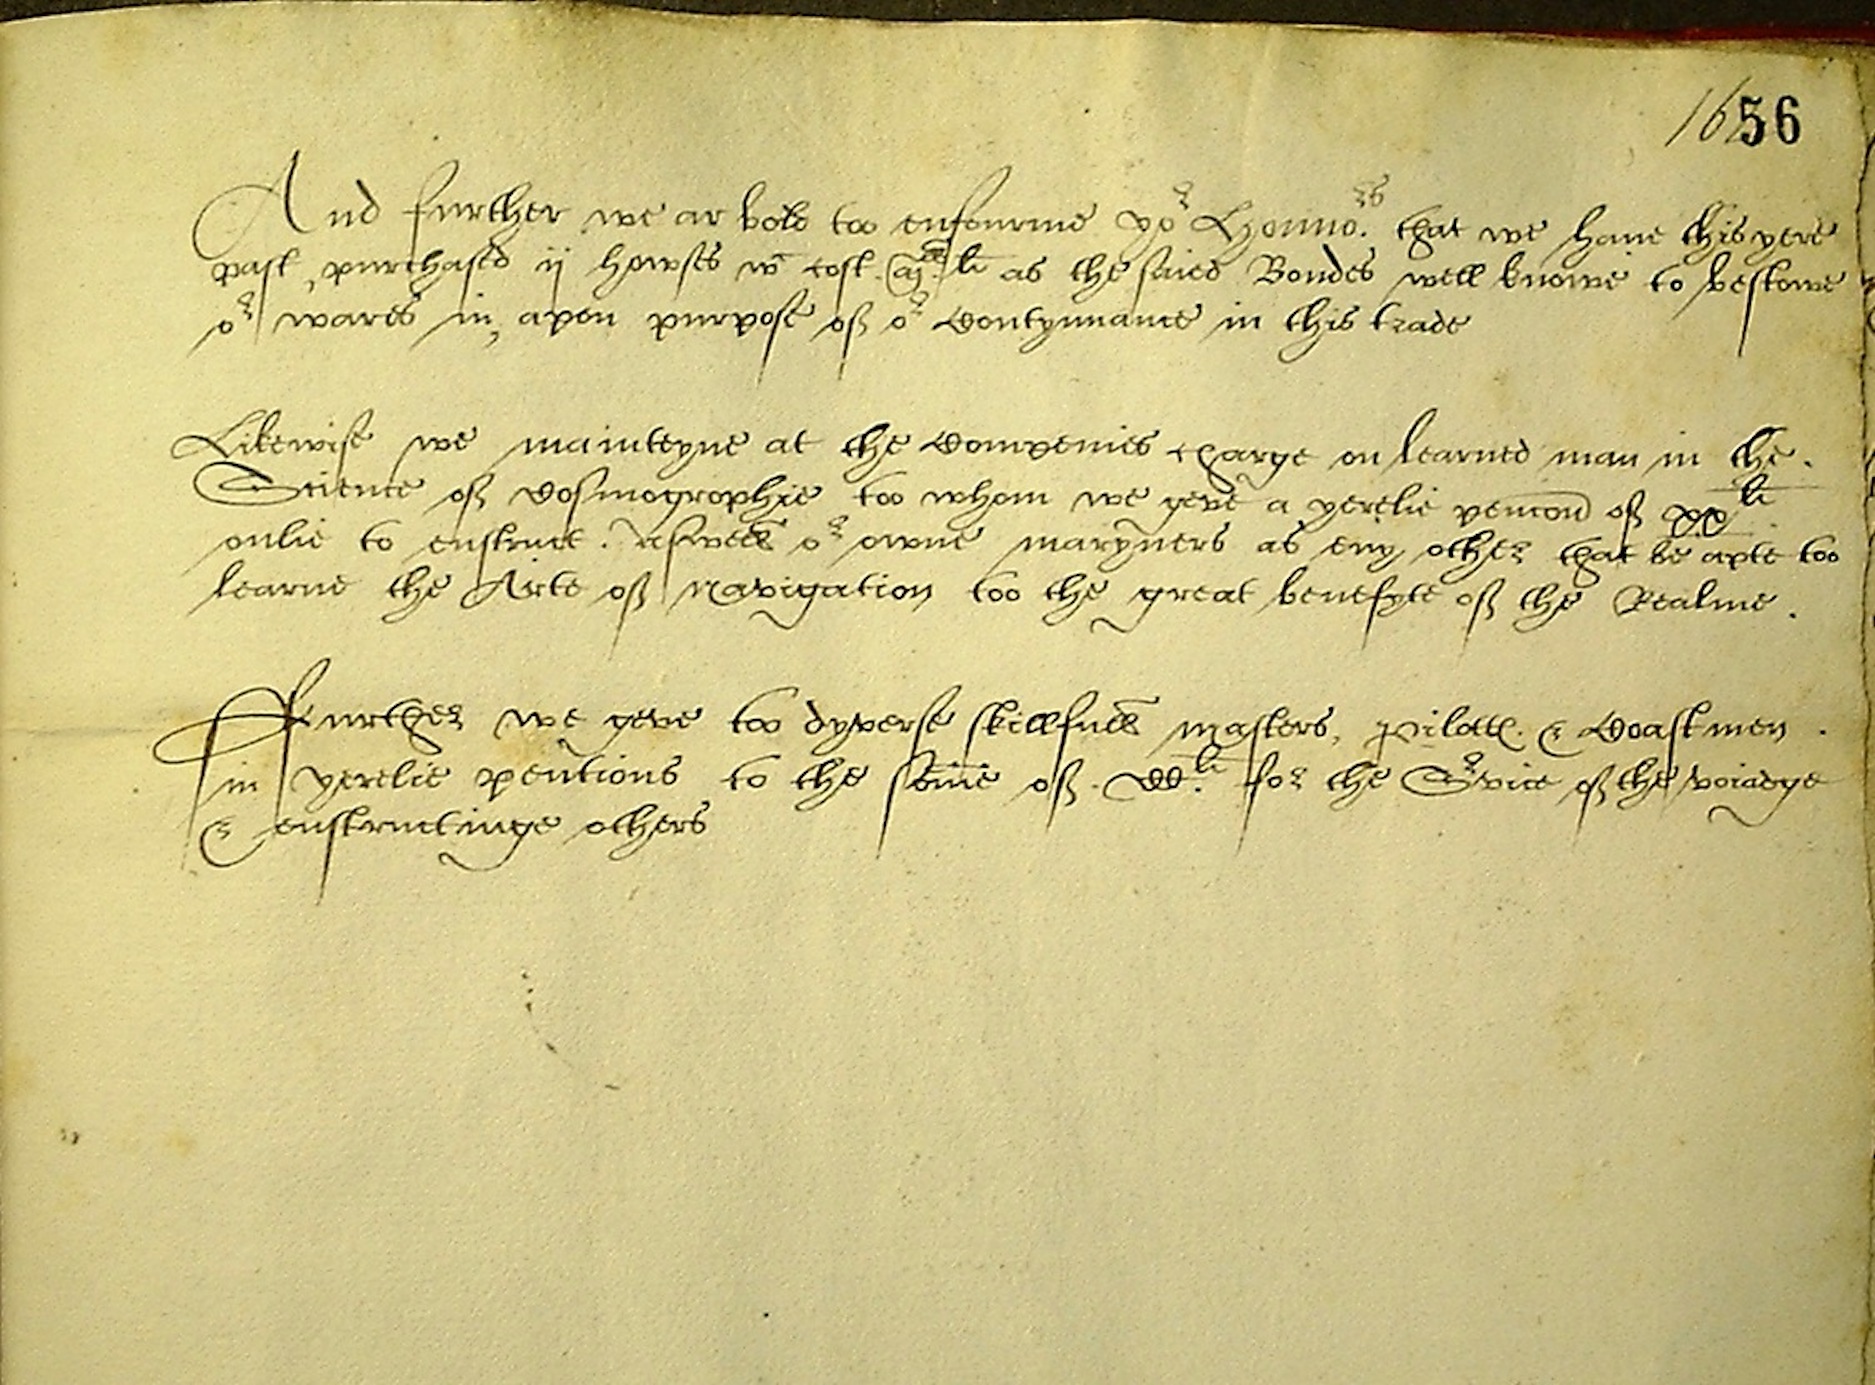 16 56
And further we ar bold too enfourme yor Honnors. that we haue this yere
past, purchased ij howses wch cost li as the saied Bondes well knowe to bestowe
or wares in, apon purpose off or Contynnance in this trade
Likewise we mainteyne at the Compenies charge on learned man in the.
Science off Cosmogrophie too whom we geve a yerelie pencon off xxli
onlie to enstruct. Aswell or owne maryners as eny other that be apte too
learne the Arte off Navigation too the great benefyte off the Realme.
Further we geve too dyverse skillfull masters, pilottes. & Coastmen.
in yerelie pentions to the some off. li. for the Service off the voiadge
& enstructinge others